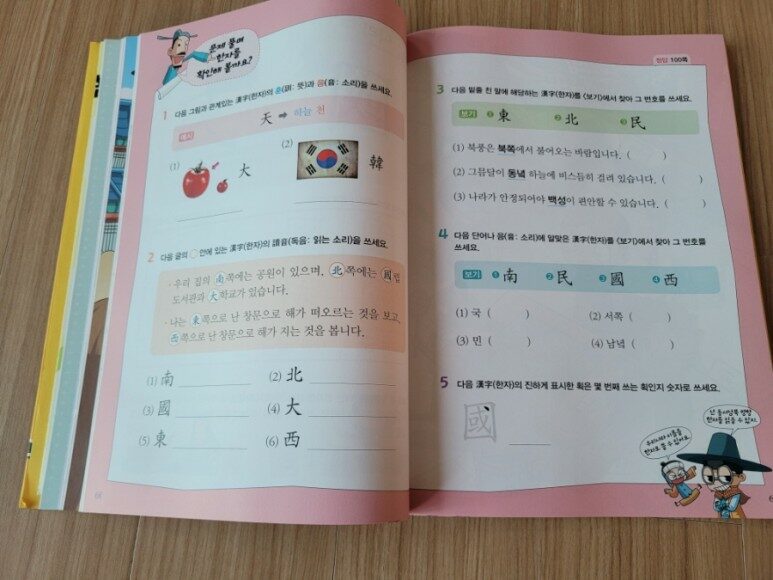 문제 풀며
한자를
확인해 볼까요?
1 다음 그림과 관계있는 漢字(한자)의 훈(訓: 뜻)과 음(音: 소리)을 쓰세요.
예시 天 ➡ 하늘 천
(1) 大
(2) 韓
2 다음 글의 ○ 안에 있는 漢字(한자)의 讀音(독음: 읽는 소리)을 쓰세요.
· 우리 집의 南쪽에는 공원이 있으며, 北쪽에는 國립
도서관과 大학교가 있습니다.
· 나는 東쪽으로 난 창문으로 해가 떠오르는 것을 보고,
西쪽으로 난 창문으로 해가 지는 것을 봅니다.
(1) 南
(2) 北
(3) 國
(4) 大
(5) 東
(6) 西
68
정답 100쪽
3 다음 밑줄 친 말에 해당하는 漢字(한자)를 <보기>에서 찾아 그 번호를 쓰세요.
보기 ❶ 東 ❷ 北 ❸ 民
(1) 북풍은 북쪽에서 불어오는 바람입니다. ( )
(2) 그믐달이 동녘 하늘에 비스듬히 걸려 있습니다. ( )
(3) 나라가 안정되어야 백성이 편안할 수 있습니다. ( )
4 다음 단어나 음(音: 소리)에 알맞은 漢字(한자)를 <보기>에서 찾아 그 번호를
쓰세요.
보기 ❶ 南 ❷ 民 ❸ 國 ❹ 西
(1) 국 ( )
(2) 서쪽 ( )
(3) 민 ( )
(4) 남녘 ( )
5 다음 漢字(한자)의 진하게 표시한 획은 몇 번째 쓰는 획인지 숫자로 쓰세요.
國
우리나라 이름을
한자로 쓸 수 있어요.
난 동서남북 방향
한자를 읽을 수 있지.